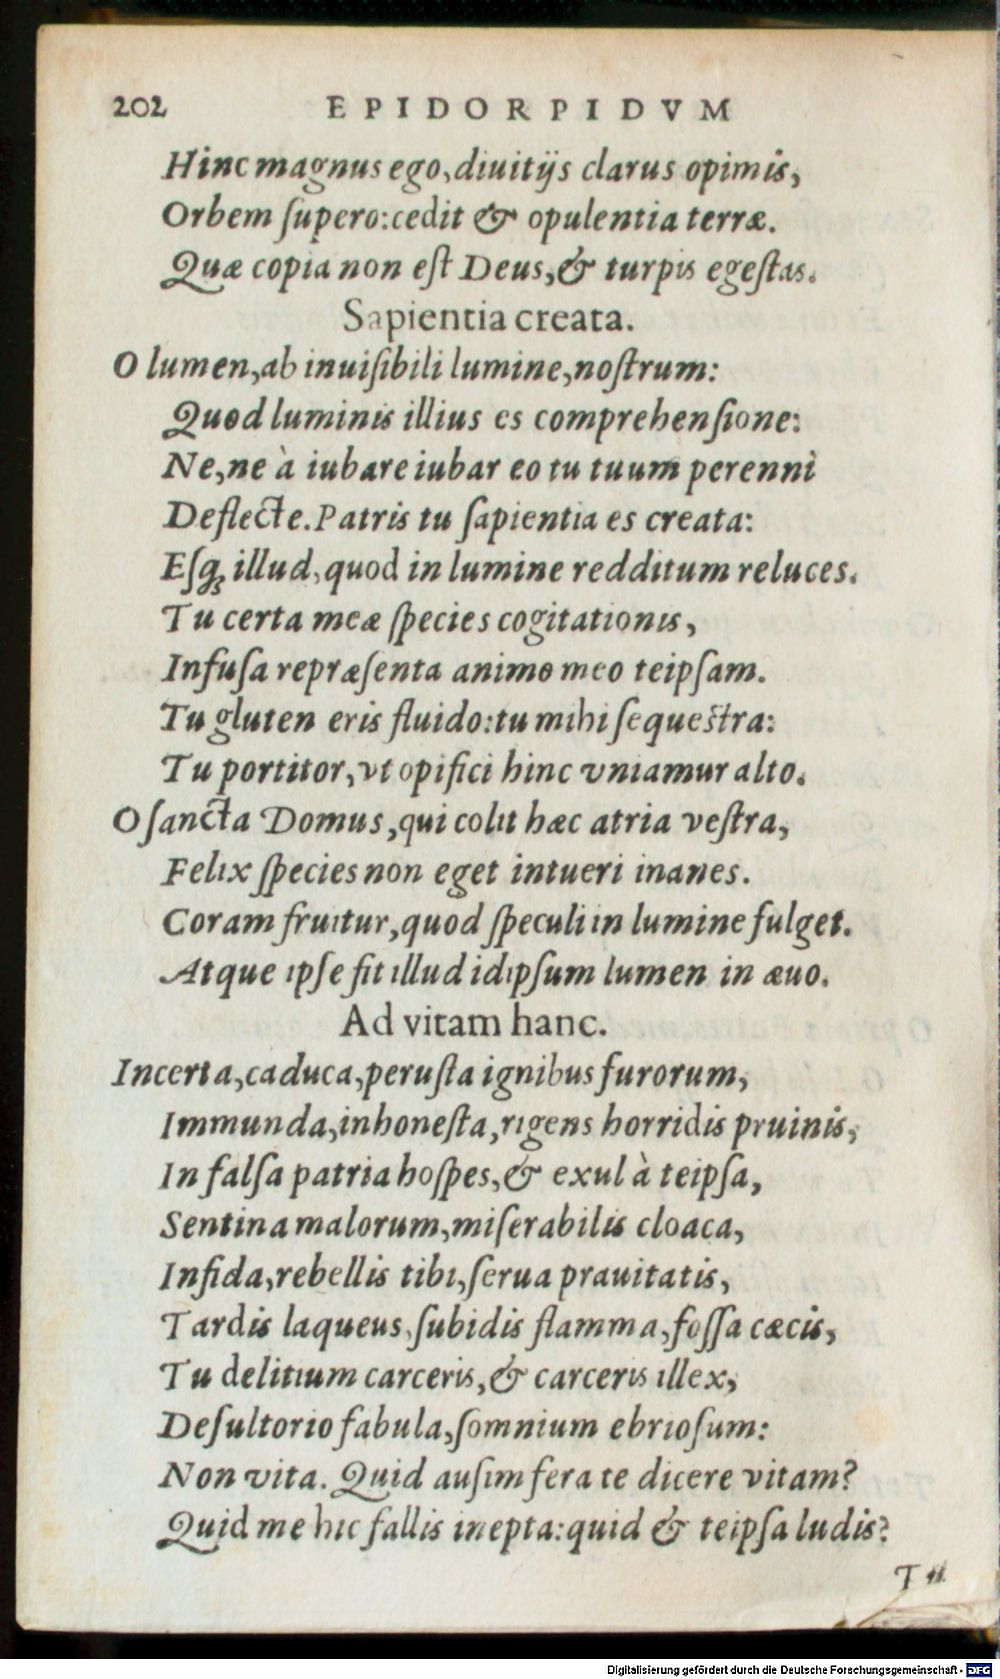 202 EPIDORPIDVM
Hinc magnus ego, diuitijs clarus opimis,
Orbem ſupero: cedit & opulentia terræ.
Quæ copia non eſt Deus, & turpis egeſtas.
Sapientia creata.
O lumen, ab inuiſibili lumine, noſtrum:
Quod luminis illius es comprehenſione:
Ne, ne à iubare iubar eo tu tuum perennì
Deflecte. Patris tu ſapientia es creata:
Eſq́; illud, quod in lumine redditum reluces.
Tu certa meæ ſpecies cogitationis,
Infuſa repræſenta animo meo teipſam.
Tu gluten eris fluido: tu mihi ſequeſtra:
Tu portitor, vt opifici hinc vniamur alto.
O ſancta Domus, qui colit hæc atria veſtra,
Felix ſpecies non eget intueri inanes.
Coram fruitur, quod ſpeculi in lumine fulget.
Atque ipſe fit illud idipſum lumen in æuo.
Ad vitam hanc.
Incerta, caduca, peruſta ignibus furorum,
Immunda, inhoneſta, rigens horridis pruinis,
In falſa patria hoſpes, & exul à teipſa,
Sentina malorum, miſerabilis cloaca,
Infida, rebellis tibi, ſerua prauitatis,
Tardis laqueus, ſubidis flamma, foſſa cæcis,
Tu delitium carceris, & carceris illex,
Deſultorio fabula, ſomnium ebrioſum:
Non vita. Quid auſim fera te dicere vitam?
Quid me hic fallis inepta: quid & teipſa ludis?
T
Digitalisierung gefördert durch die Deutsche Forschungsgemeinschaft - DFG